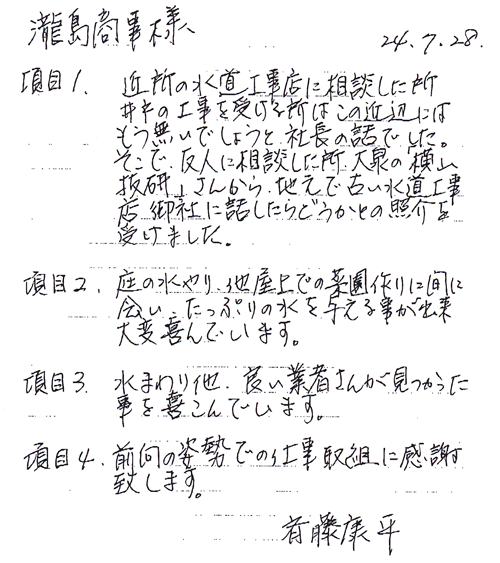 瀧島商事様
24.7.28.
項目1. 近所の水道工事店に相談した所
井戸の工事を受ける所はこの近辺には
もう無いでしょうと社長の話でした。
そこで、友人に相談した所、大泉の横山
技研」さんから、地元で古い水道工事
店 御社に話したらどうかとの照介を
受けました。
項目2. 庭の水やり、他屋上での菜園作りに間に
会い、たっぷりの水を与える事が出来
大変喜んでいます。
項目3. 水まわり他、良い業者さんが見つかった
事を喜こんでいます。
項目4. 前向の姿勢での仕事取組に感謝
致します。
斉藤康平